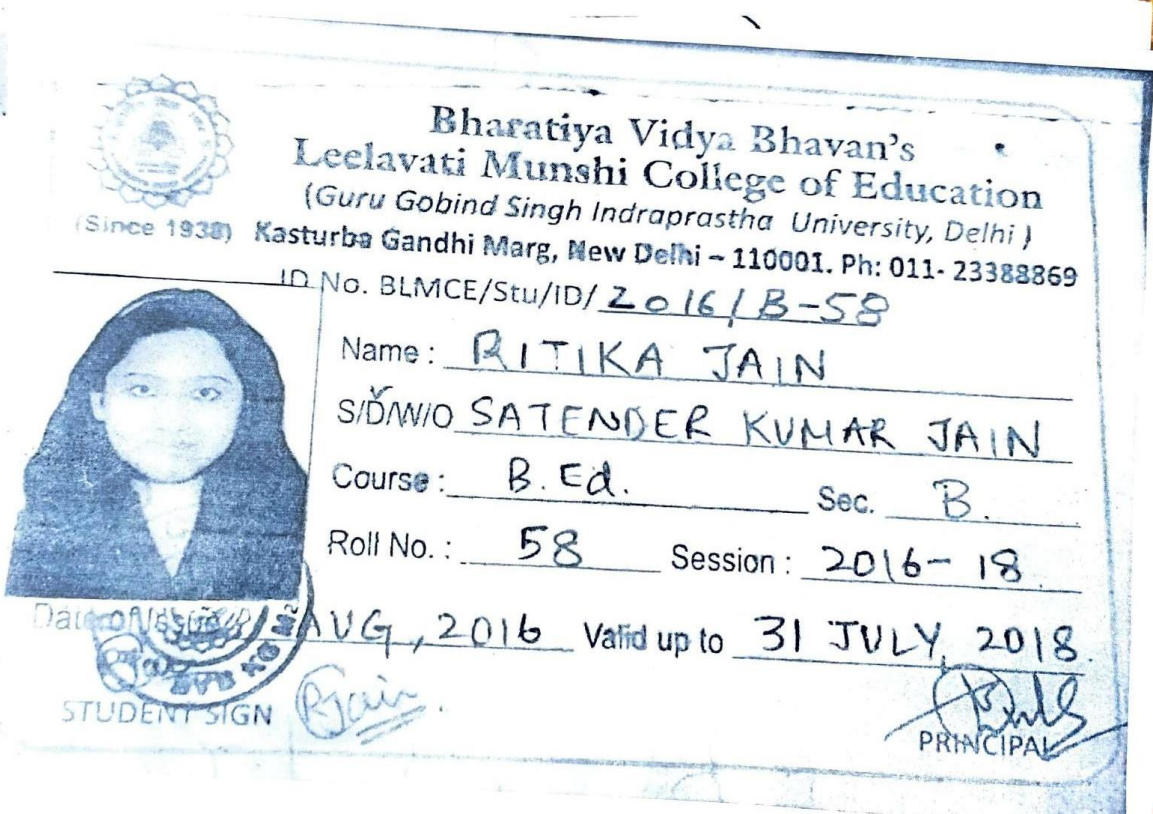 Bharatiya Vidya Bhavan's
Leelavati Munshi College of Education
(Guru Gobind Singh Indraprastha University, Delhi)
(Since 1938) Kasturba Gandhi Marg, New Delhi – 110001. Ph: 011- 23388869
ID No. BLMCE/Stu/ID/ 2016/B-58
Name : RITIKA JAIN
S/D/W/O SATENDER KUMAR JAIN
Course : B.Ed. Sec. B.
Roll No. : 58 Session : 2016-18
Date of Issue AUG, 2016 Valid up to 31 JULY, 2018.
STUDENT SIGN RJain.
PRINCIPAL